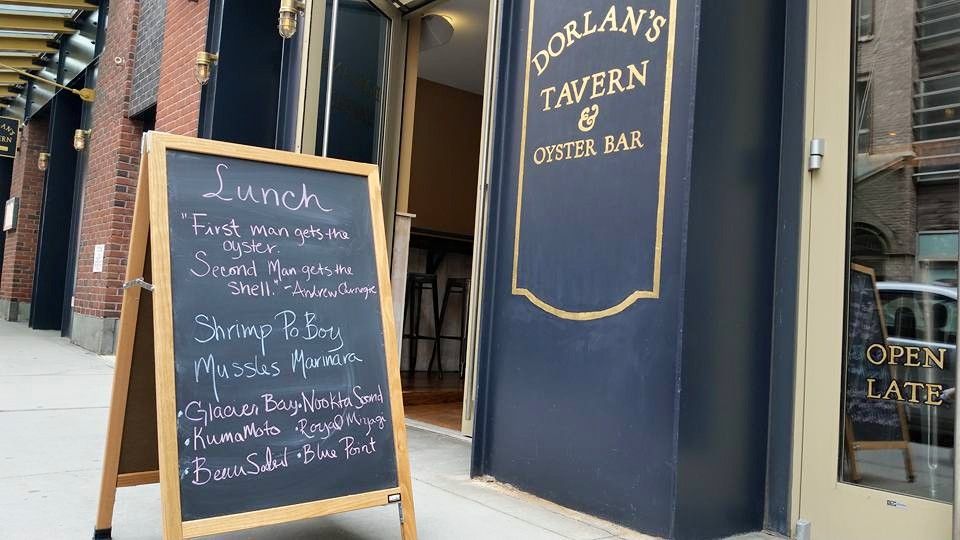 Lunch
"First man gets the
oyster.
Second Man gets the
shell." - Andrew Carnegie
Shrimp Po Boy
Mussles Marinara
• Glacier Bay • Nookta Sound
• Kumamoto • Royal Miyagi
• Beau Soleil • Blue Point
DORLAN'S
TAVERN
&
OYSTER BAR
OPEN
LATE